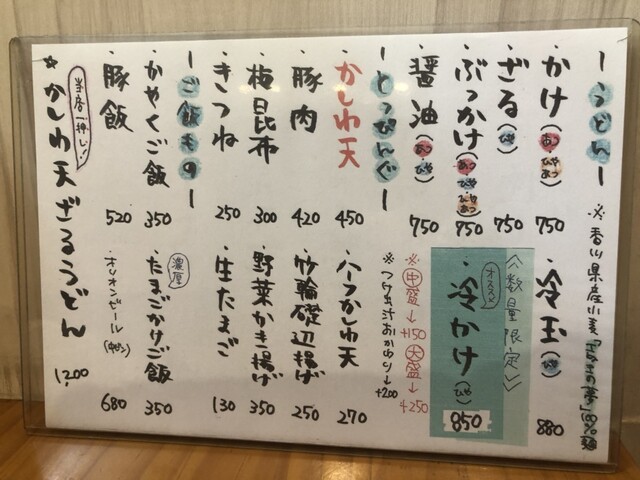 ーうどんー
※香川県産小麦「さぬきの夢」100%麺
・かけ(あつ ひや ひやあつ) 750
・ざる(ひや) 750
・ぶっかけ(あつ ひや ひやあつ) 750
・醤油(あつ ひや) 750
・冷玉(ひや) 880
<<数量限定>>
オススメ
・冷かけ(ひや) 850
※中盛→+150 大盛→+250
※つけ出汁おかわり→+200
ーとっぴんぐー
・かしわ天 450
・豚肉 420
・梅昆布 300
・きつね 250
・ハーフかしわ天 270
・竹輪磯辺揚げ 250
・野菜かき揚げ 350
・生たまご 130
ーご飯ものー
・かやくご飯 350
・豚飯 520
濃厚
・たまごかけご飯 350
・オリオンビール(中ビン) 680
当店一押し!
☆かしわ天ざるうどん 1,200